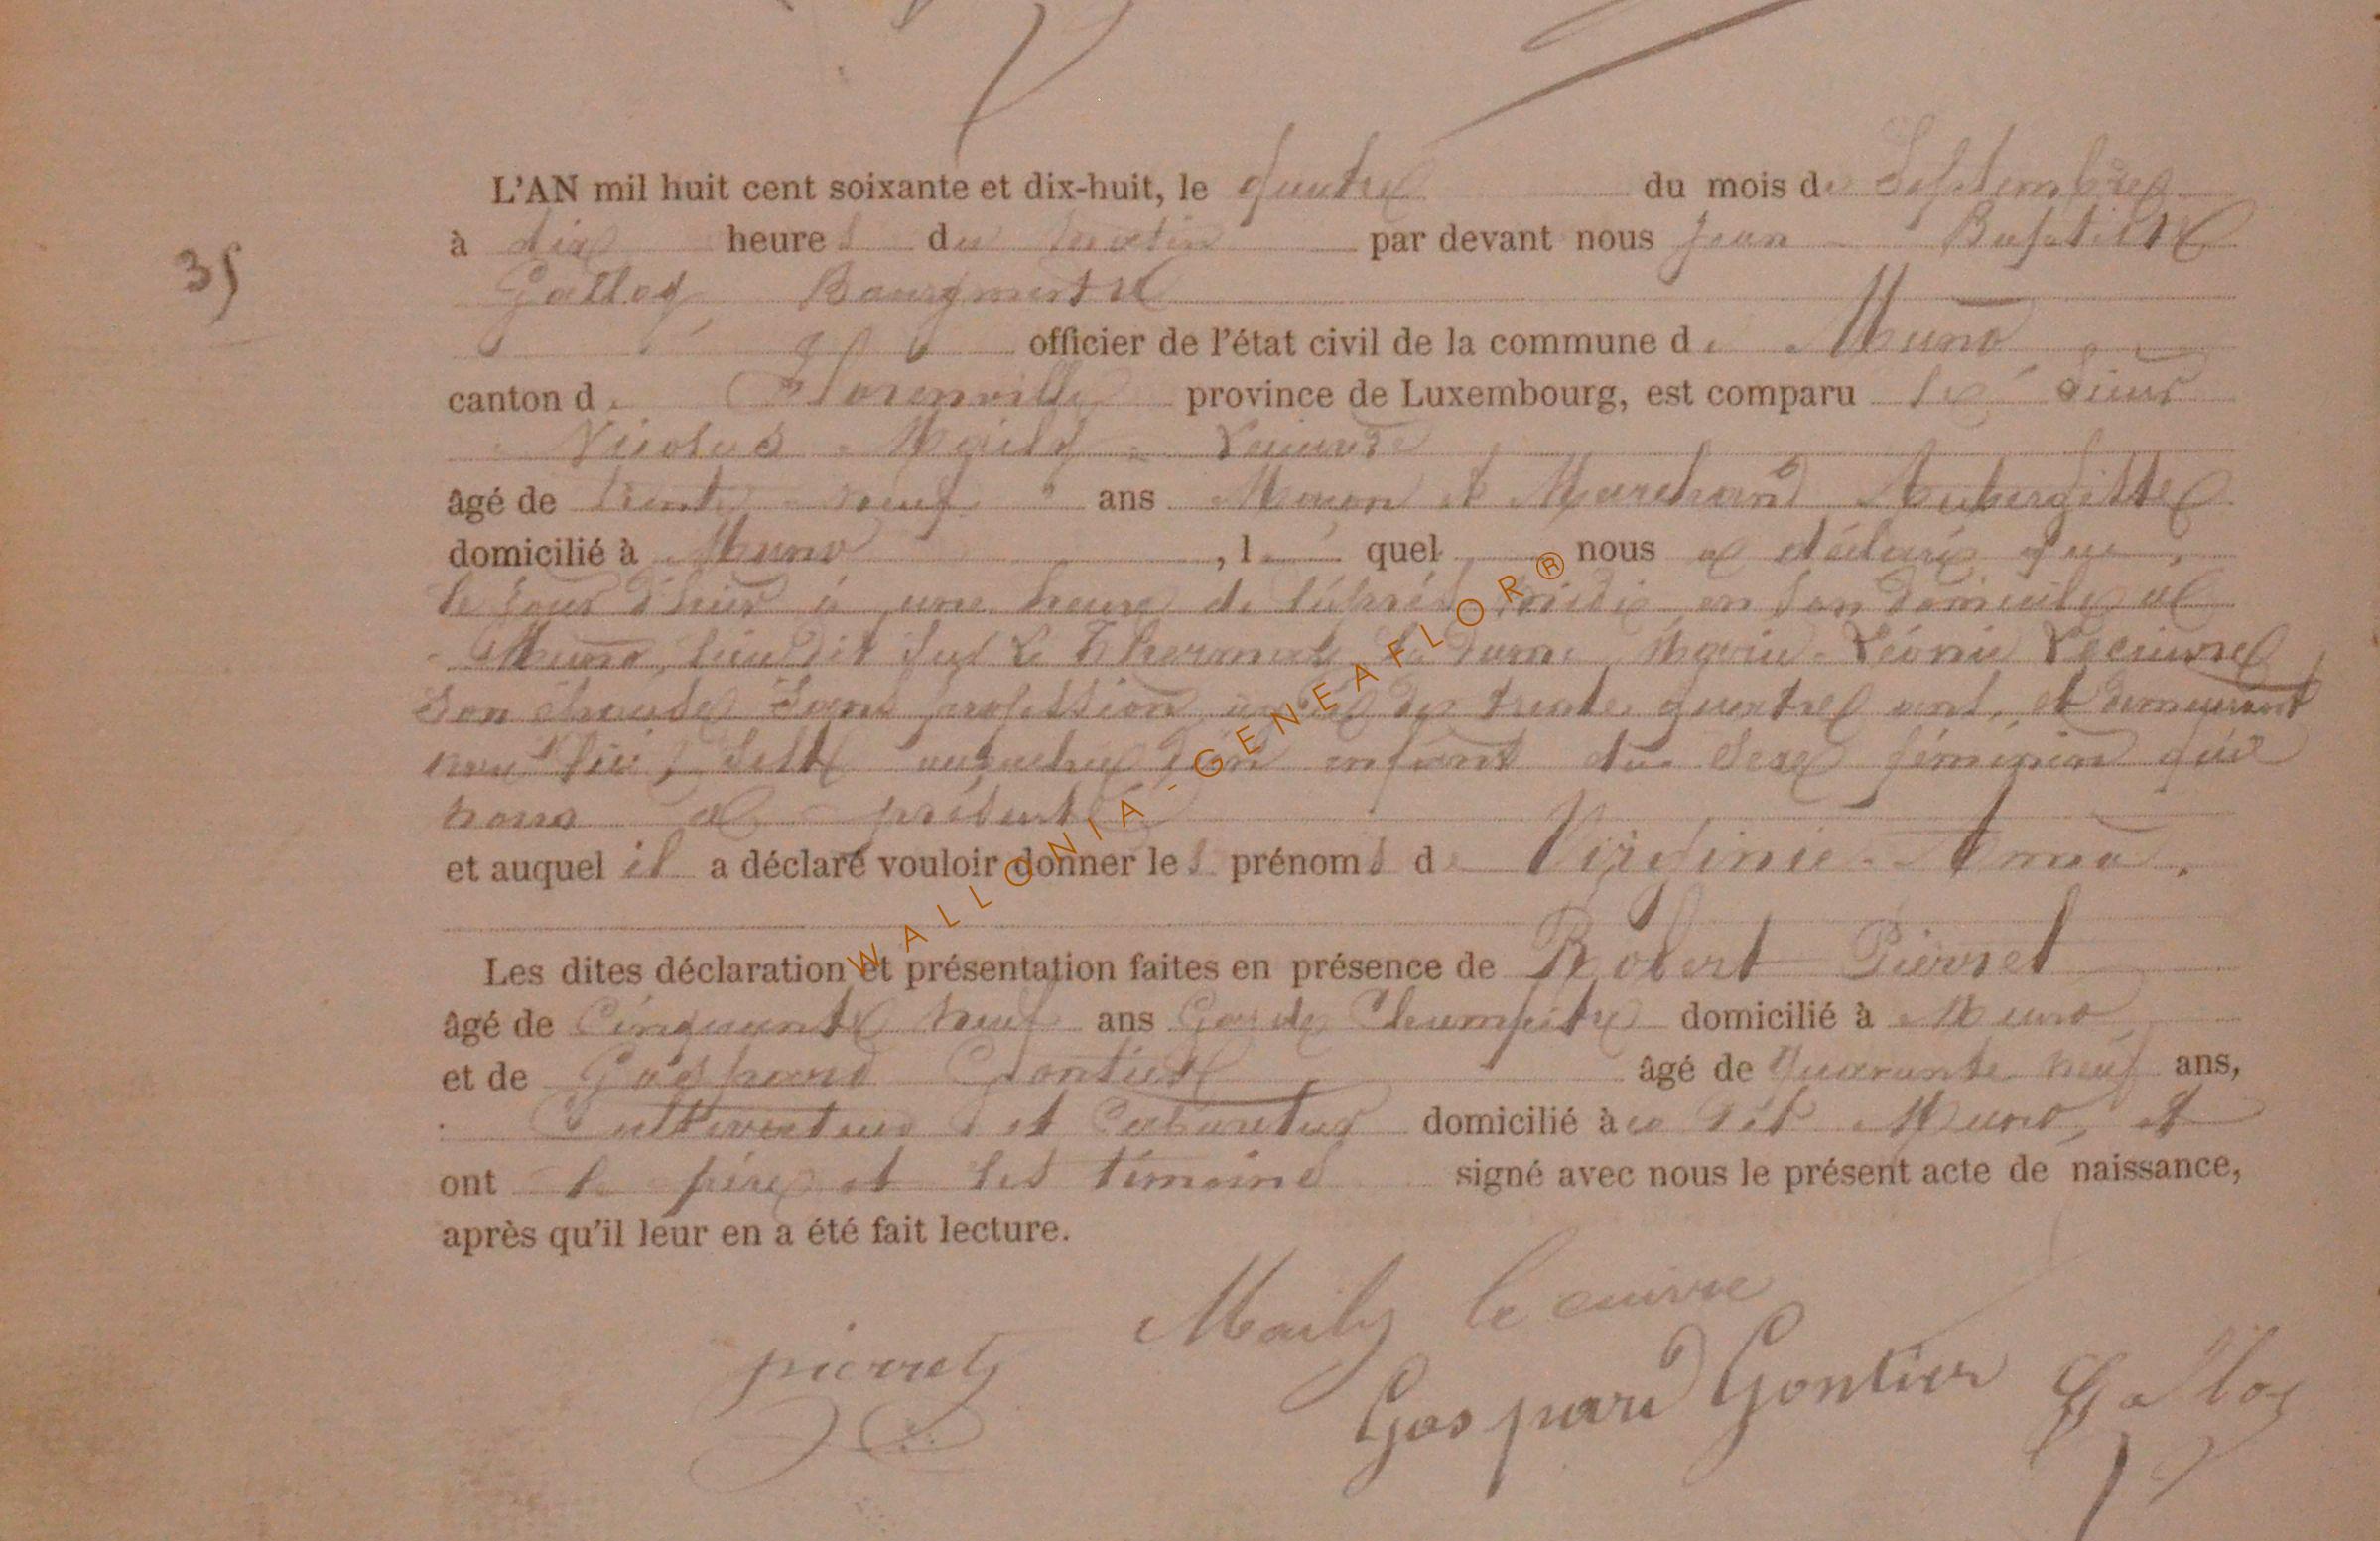 L'AN mil huit cent soixante et dix-huit, le quatre du mois de Septembre
à dix heures du matin par devant nous Jean Baptiste
Galloy Bourgmestre
35
officier de l'état civil de la commune de Muno
canton de Florenville province de Luxembourg, est comparu le sieur
Nicolas Maily Lecuivre
âgé de trente neuf ans Maçon et Marchand Aubergiste
domicilié à Muno, l quel nous a déclaré que,
le jour d'hier à une heure de l'après midi en son domicile a
Muno, lieu dit sur le la dame Marie Léonie Lecuivre
son épouse sans profession, âgée de trente quatre ans, et demeurant
avec lui, est accouchée d'un enfant du sexe féminin qu'il
nous a présenté
et auquel il a déclaré vouloir donner les prénoms de Virginie Anna.
Les dites déclaration et présentation faites en présence de Robert Pierret
âgé de Cinquante neuf ans Garde Champêtre domicilié à Muno
et de Gaspard Gontier âgé de Quarante neuf ans,
Cultivateur et Cabaretier domicilié à dit Muno, et
ont le père et les témoins signé avec nous le présent acte de naissance,
après qu'il leur en a été fait lecture.
Maily lecuivre
pierret
Gaspard Gontier Galloy
WALLONIA-GENEAFLOR®